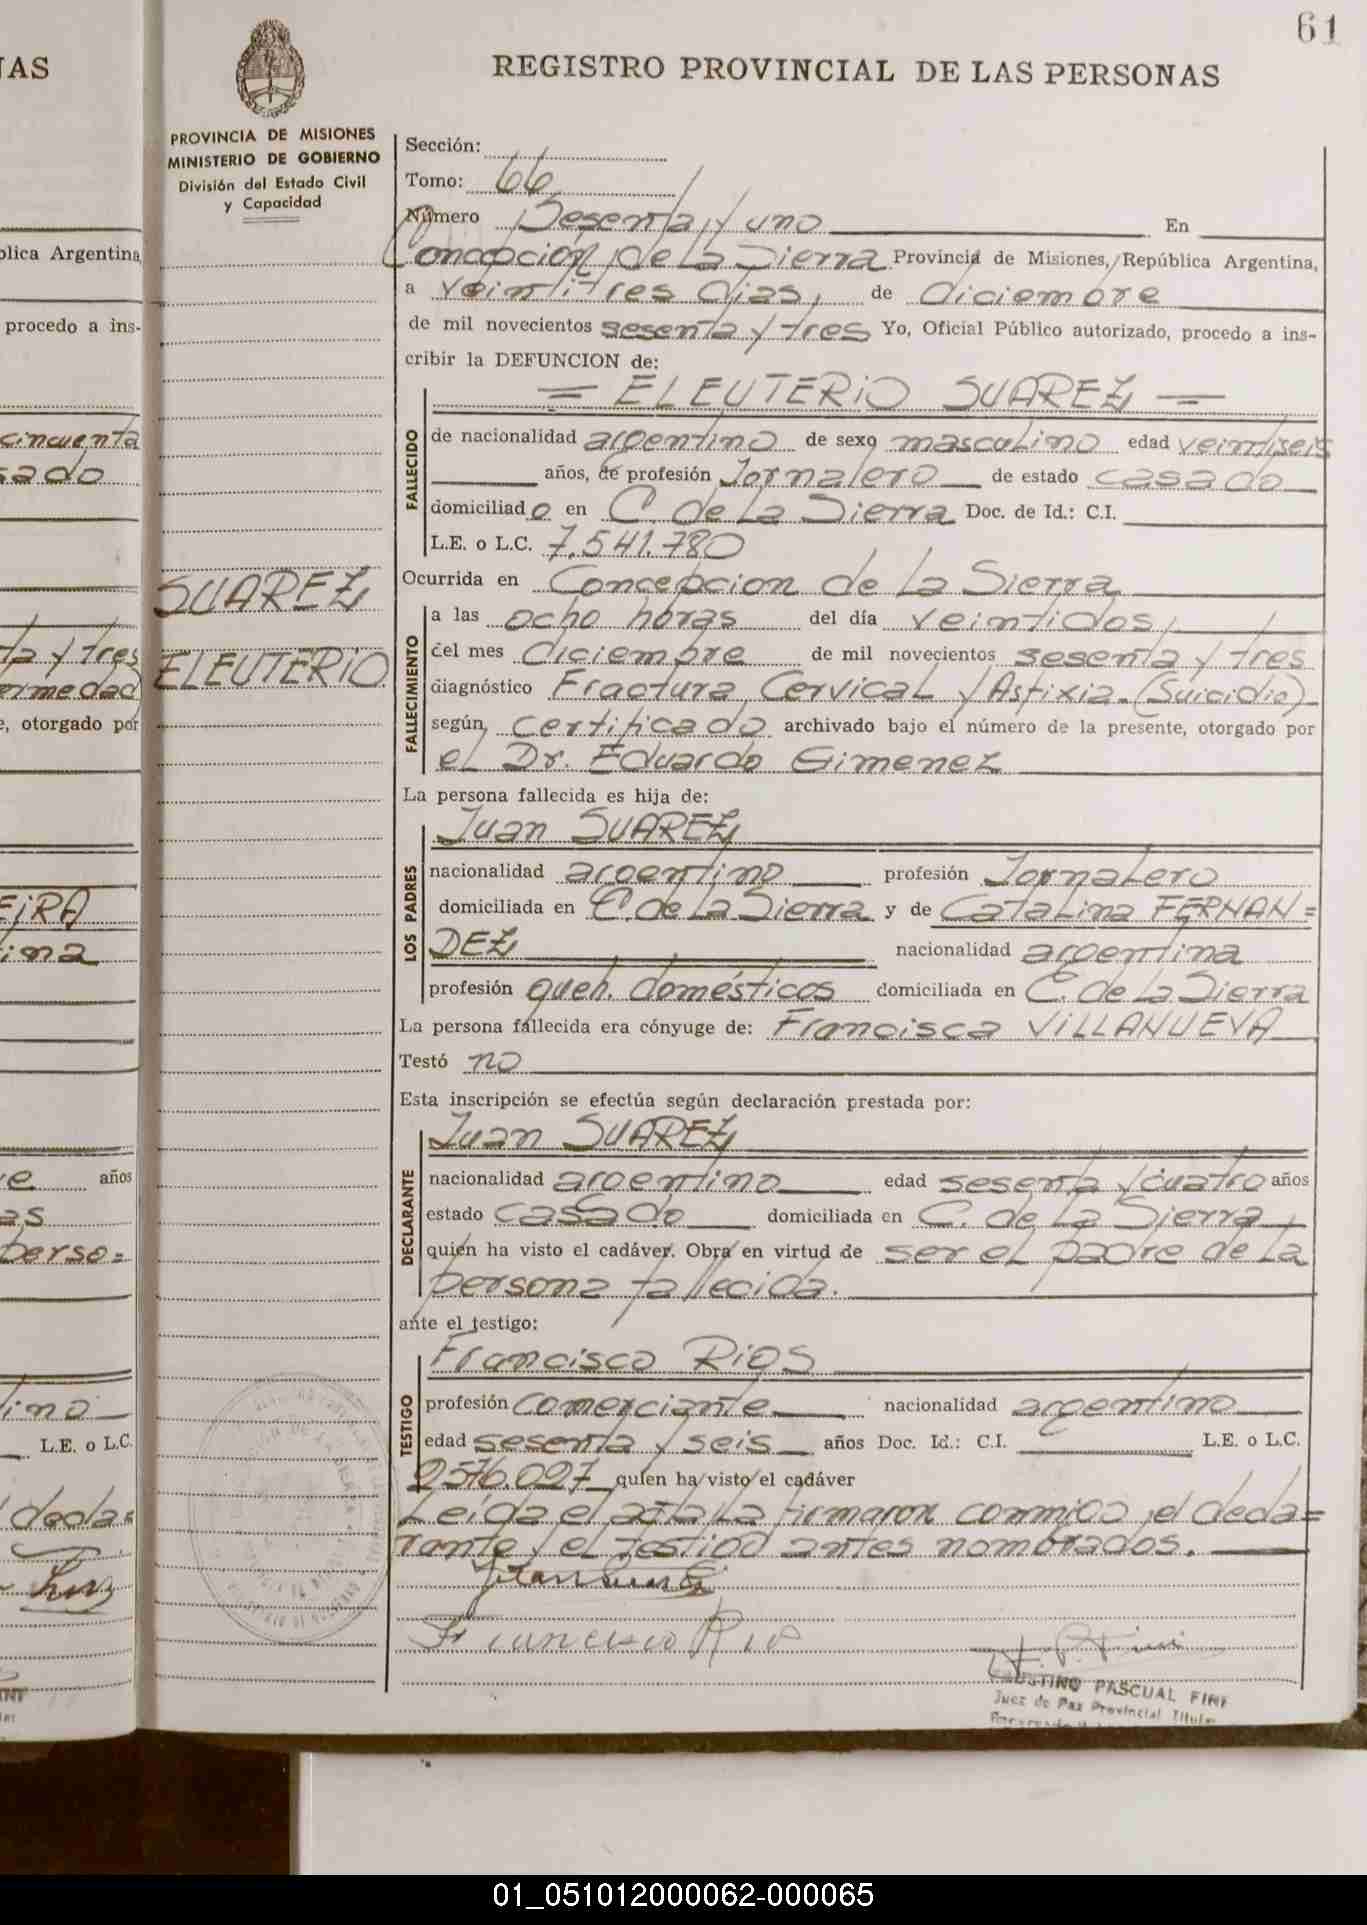 61
REGISTRO PROVINCIAL DE LAS PERSONAS
PROVINCIA DE MISIONES
MINISTERIO DE GOBIERNO
División del Estado Civil
y Capacidad
SUAREZ
ELEUTERIO
Sección:
Tomo: 66
Número Sesenta y uno En
Concepción de La Sierra Provincia de Misiones, República Argentina,
a veintitres dias, de diciembre
de mil novecientos sesenta y tres Yo, Oficial Público autorizado, procedo a ins-
cribir la DEFUNCION de:
= ELEUTERIO SUAREZ =
FALLECIDO
de nacionalidad argentino de sexo masculino edad veintiseis
años, de profesión Jornalero de estado casado
domiciliado en C. de La Sierra Doc. de Id.: C.I.
L.E. o L.C. 7.541.780
Ocurrida en Concepcion de La Sierra
FALLECIMIENTO
a las ocho horas del día veintidos,
del mes diciembre de mil novecientos sesenta y tres
diagnóstico Fractura Cervical y Asfixia-(Suicidio)
según, certificado archivado bajo el número de la presente, otorgado por
el Dr. Eduardo Gimenez
La persona fallecida es hija de:
LOS PADRES
Juan SUAREZ
nacionalidad argentino profesión Jornalero
domiciliada en C. de La Sierra y de Catalina FERNAN=
DEZ nacionalidad argentina
profesión queh. domésticos domiciliada en C. de La Sierra
La persona fallecida era cónyuge de: Francisca VILLANUEVA
Testó no
Esta inscripción se efectúa según declaración prestada por:
DECLARANTE
Juan SUAREZ
nacionalidad argentino edad sesenta y cuatro años
estado casado domiciliada en C. de La Sierra
quien ha visto el cadáver. Obra en virtud de ser el padre de La
persona fallecida.
ante el testigo:
TESTIGO
Francisco RIOS
profesión comerciante nacionalidad argentino
edad sesenta y seis años Doc. Id.: C.I. L.E. o L.C.
2576.027 quien ha visto el cadáver
Leída el acta La firmaron conmigo el decla=
rante y el testigo antes nombrados.
Francisco Rio
FAUSTINO PASCUAL FINI
Juez de Paz Provincial Titular
01_051012000062-000065